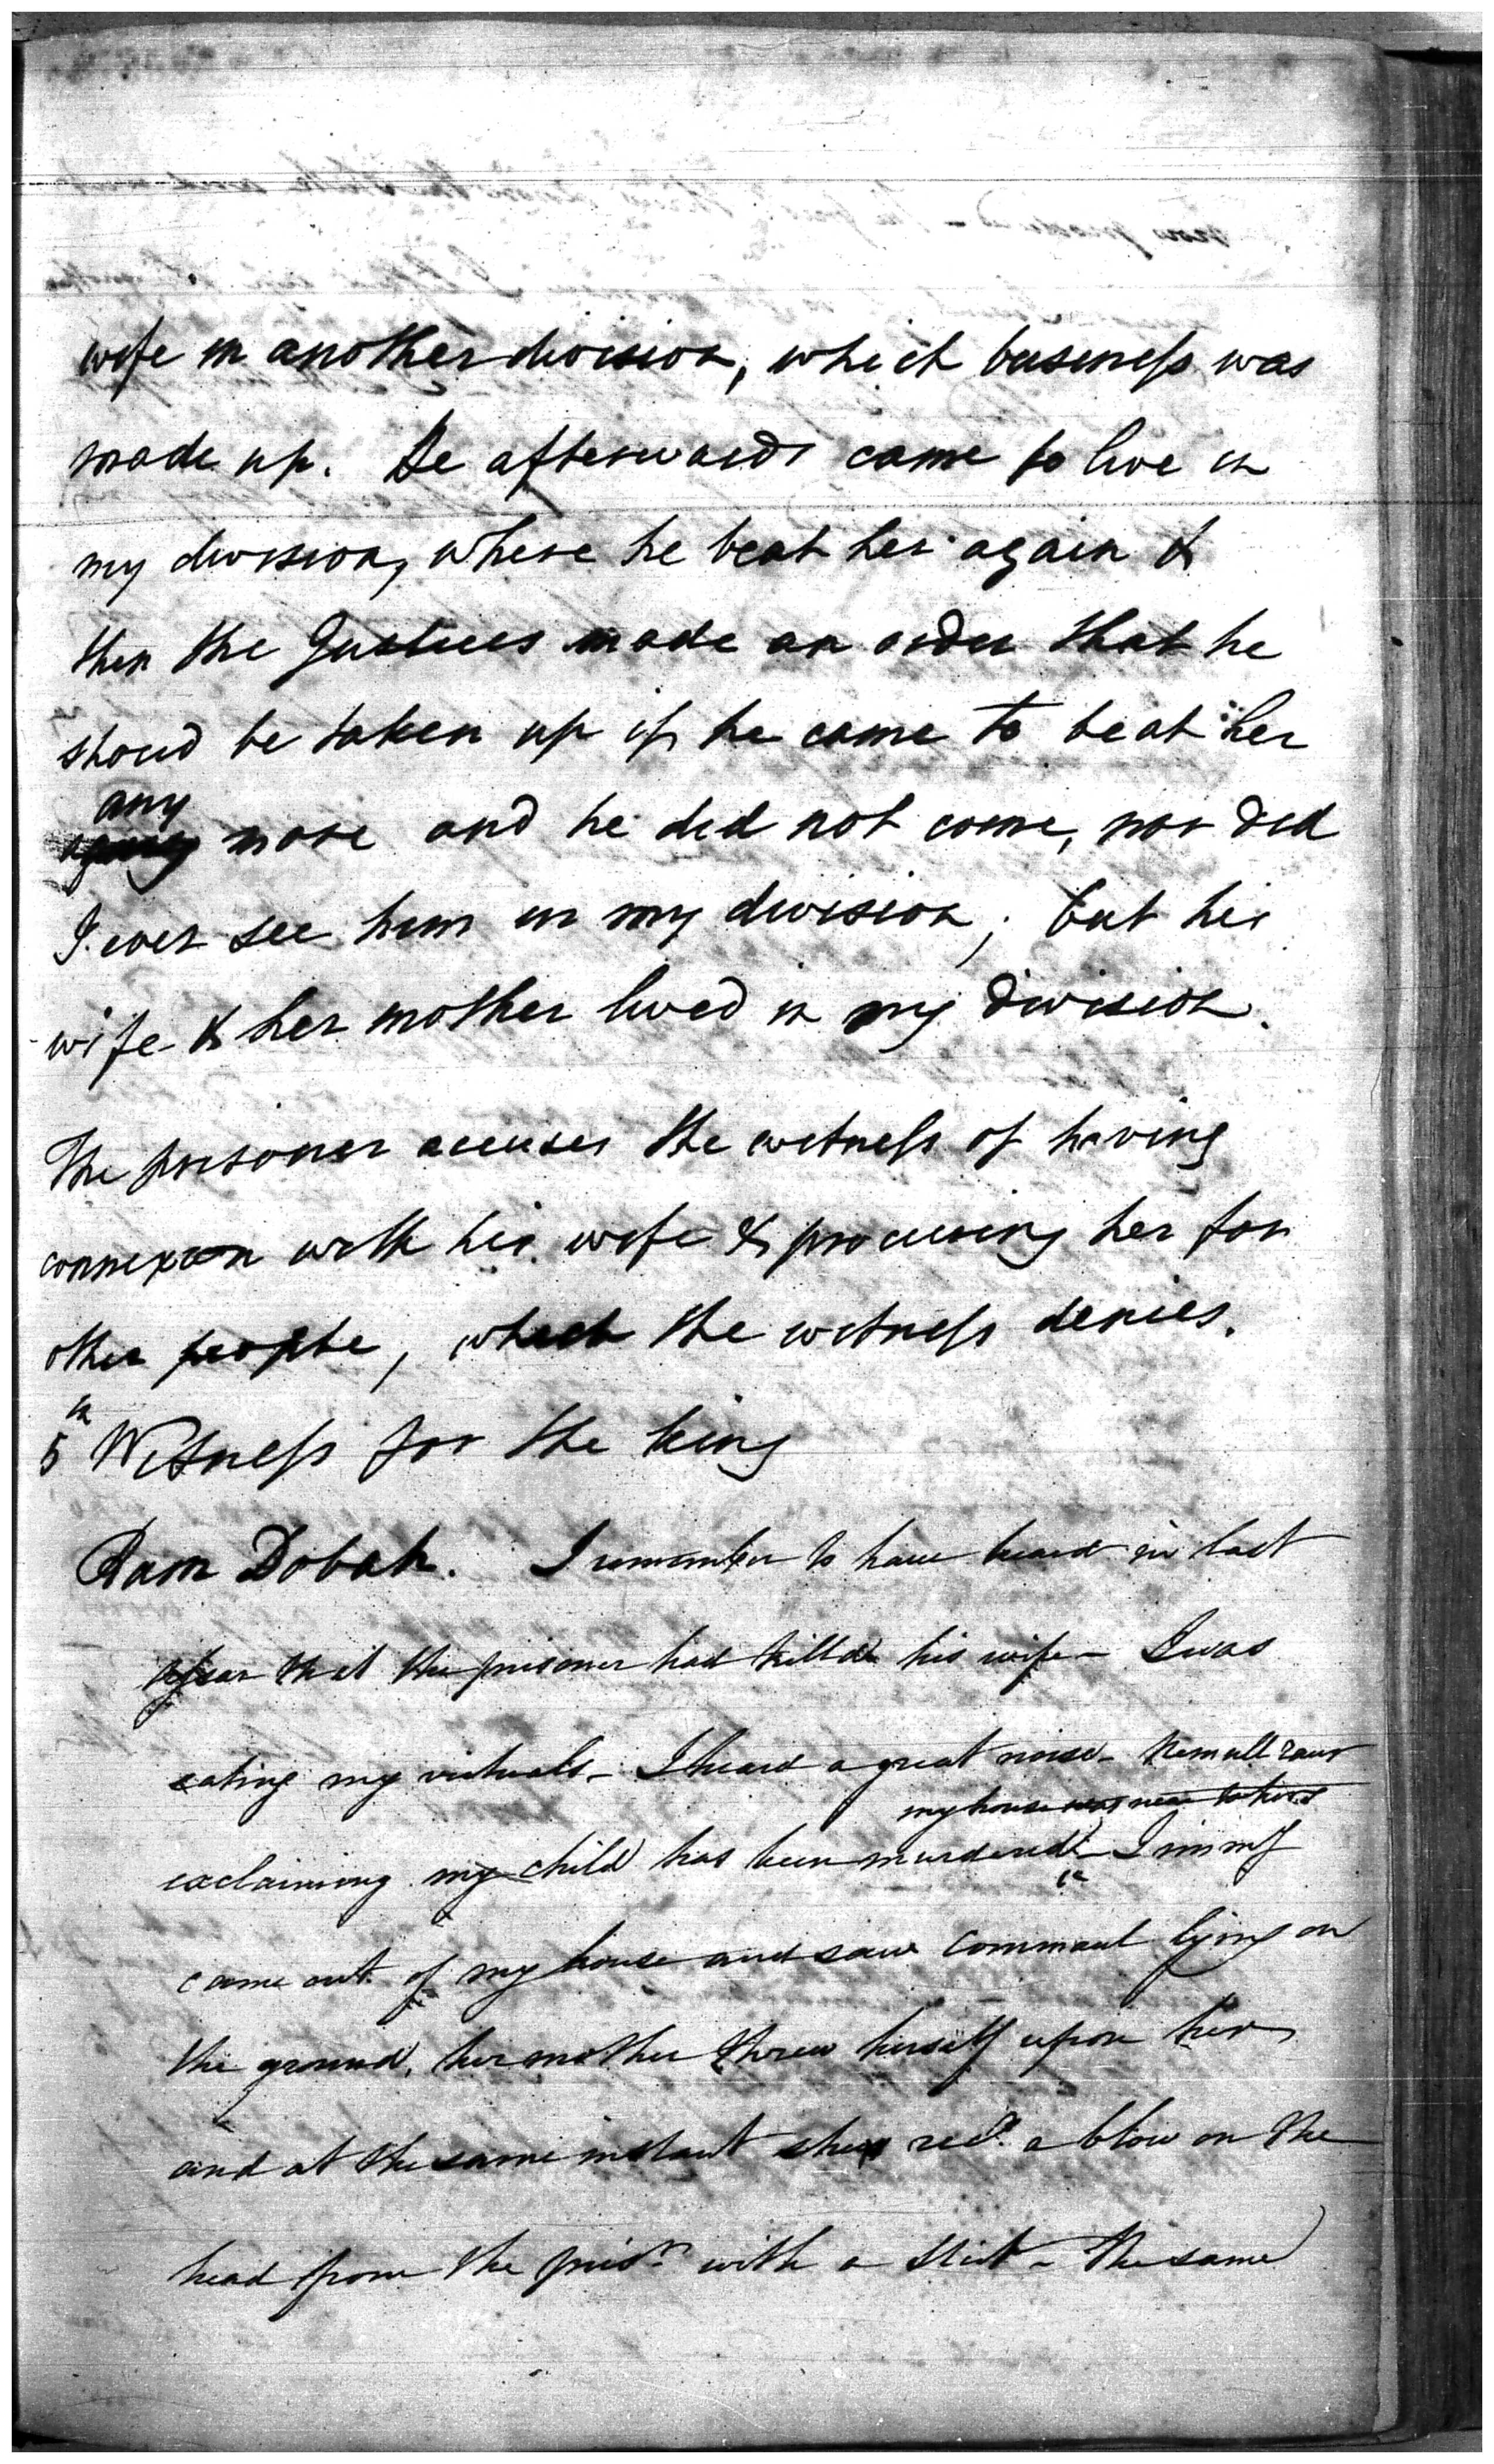 wife in another division, which business was
made up. He afterwards came to live in
my division, where he beat her again &
then the Justices made an order that he
shoud be taken up if he came to beat her
any
more and he did not come, nor did
I ever see him in my division; but his
wife & her mother lived in my division.
The prisoner accuses the witness of having
connexion with his wife & procuring her for
other people, which the witness denies.
5th Witness for the King
Ram Dobah. I remember to have heard in last
that the prisoner had killed his wife - I was
eating my victuals - I heard a great noise -
my house was near to hers
exclaiming my child has been murdered - I immy
came out of my house and saw Commaul lying on
the ground, her mother threw herself upon her
and at the same instant she recd. a blow on the
head from the prisr. with a stick - the same